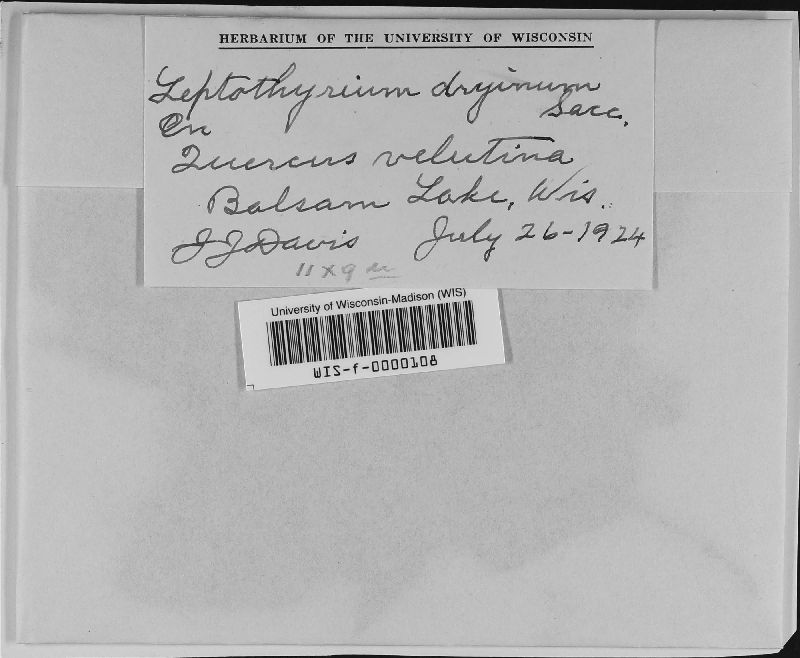 HERBARIUM OF THE UNIVERSITY OF WISCONSIN
Leptothyrium dryinum
Sacc.
On
Quercus velutina
Balsam Lake, Wis.
J J Davis July 26-1924
11 x 9 u
University of Wisconsin-Madison (WIS)
WIS-f-0000108